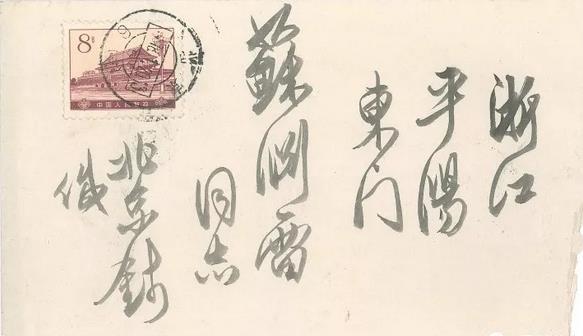 浙江
平陽
東门
蘇渊雷
同志
北京钱
缄
8分
中国人民邮政